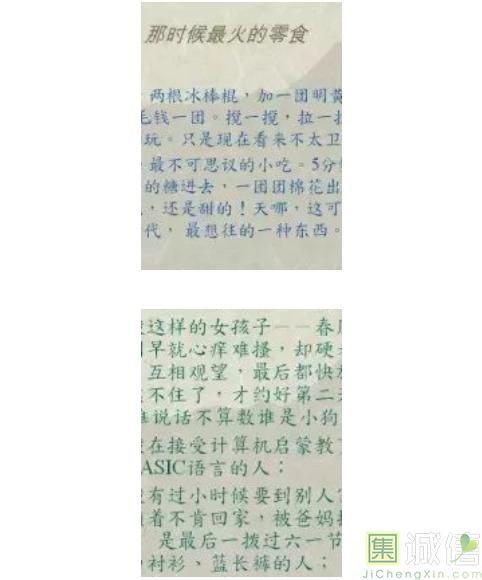 那时候最火的零食
两根冰棒棍，加一团明黄
毛钱一团。搅一搅，拉一拉
玩。只是现在看来不太卫
最不可思议的小吃。5分
的糖进去，一团团棉花出
，还是甜的！天哪，这可
代，最想往的一种东西。
这样的女孩子——春
早就心痒难搔，却硬
互相观望，最后都快
不住了，才约好第二
谁说话不算数谁是小狗
在接受计算机启蒙教
BASIC语言的人；
有过小时候要到别人
着不肯回家，被爸妈
是最后一拨过六一节
衬衫、蓝长裤的人；
集诚信
JiChengXin.com